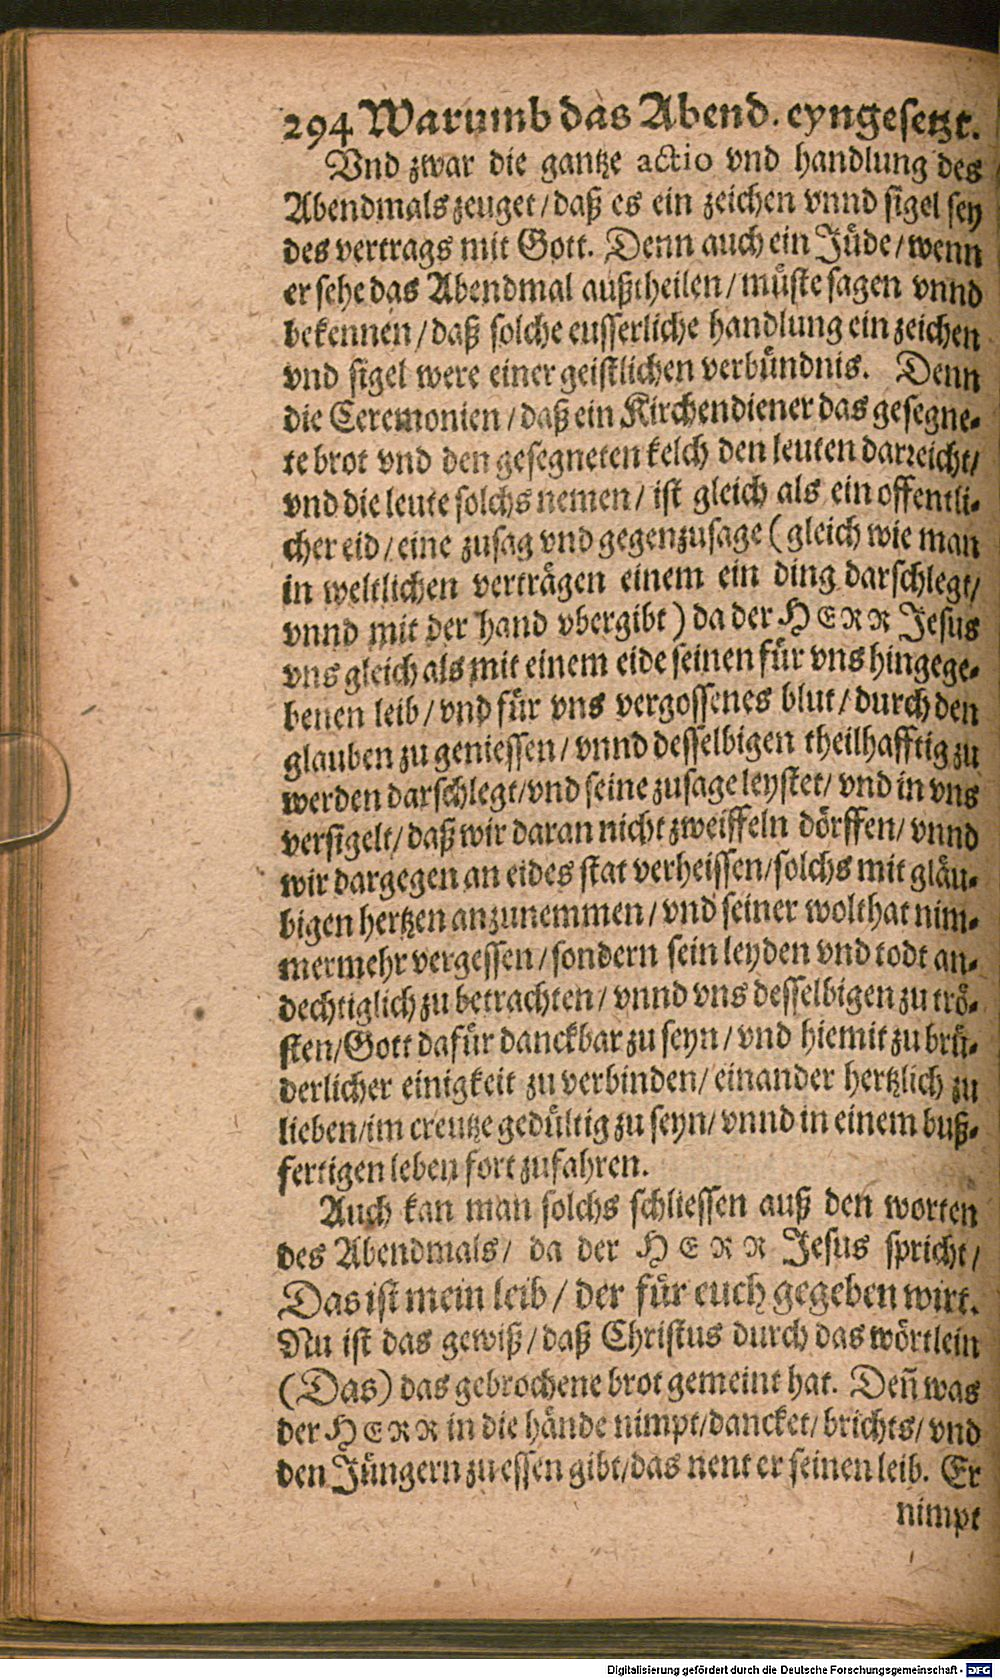 294 Warumb das Abend. eyngesetzt.
Vnd zwar die gantze actio vnd handlung des
Abendmals zeuget/ daß es ein zeichen vnnd sigel sey
des vertrags mit Gott. Denn auch ein Jüde/ wenn
er sehe das Abendmal außtheilen/ müste sagen vnnd
bekennen/ daß solche eusserliche handlung ein zeichen
vnd sigel were einer geistlichen verbündnis. Denn
die Ceremonien/ daß ein Kirchendiener das gesegne-
te brot vnd den gesegneten kelch den leuten darreicht/
vnd die leute solchs nemen/ ist gleich als ein offentli-
cher eid/ eine zusag vnd gegenzusage (gleich wie man
in weltlichen verträgen einem ein ding darschlegt/
vnnd mit der hand vbergibt) da der HERR Jesus
vns gleich als mit einem eide seinen für vns hingege-
benen leib/ vnd für vns vergossenes blut/ durch den
glauben zu geniessen/ vnnd desselbigen theilhafftig zu
werden darschlegt/ vnd seine zusage leystet/ vnd in vns
versigelt/ daß wir daran nicht zweiffeln dörffen/ vnnd
wir dargegen an eides stat verheissen/ solchs mit gläu-
bigen hertzen anzunemmen/ vnd seiner wolthat nim-
mermehr vergessen/ sondern sein leyden vnd todt an-
dechtiglich zu betrachten/ vnnd vns desselbigen zu trö-
sten/ Gott dafür danckbar zu seyn/ vnd hiemit zu brü-
derlicher einigkeit zu verbinden/ einander hertzlich zu
lieben/ im creutze gedültig zu seyn/ vnnd in einem buß-
fertigen leben fort zufahren.
Auch kan man solchs schliessen auß den worten
des Abendmals/ da der HERR Jesus spricht/
Das ist mein leib/ der für euch gegeben wirt.
Nu ist das gewiß/ daß Christus durch das wörtlein
(Das) das gebrochene brot gemeint hat. Deñ was
der HERR in die hände nimpt/ dancket/ brichts/ vnd
den Jüngern zu essen gibt/ das nent er seinen leib. Er
nimpt
Digitalisierung gefördert durch die Deutsche Forschungsgemeinschaft - DFG